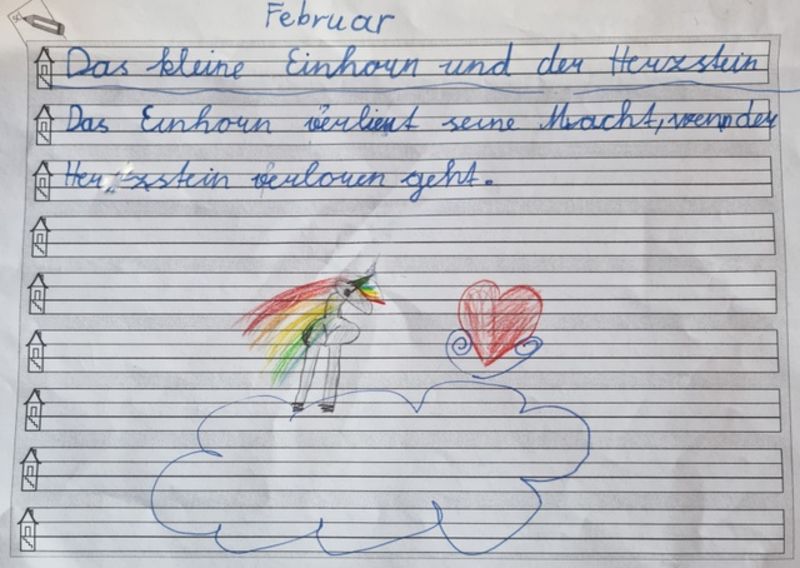 Februar
Das kleine Einhorn und der Herzstein
Das Einhorn verliert seine Macht, wenn der
Herzstein verloren geht.